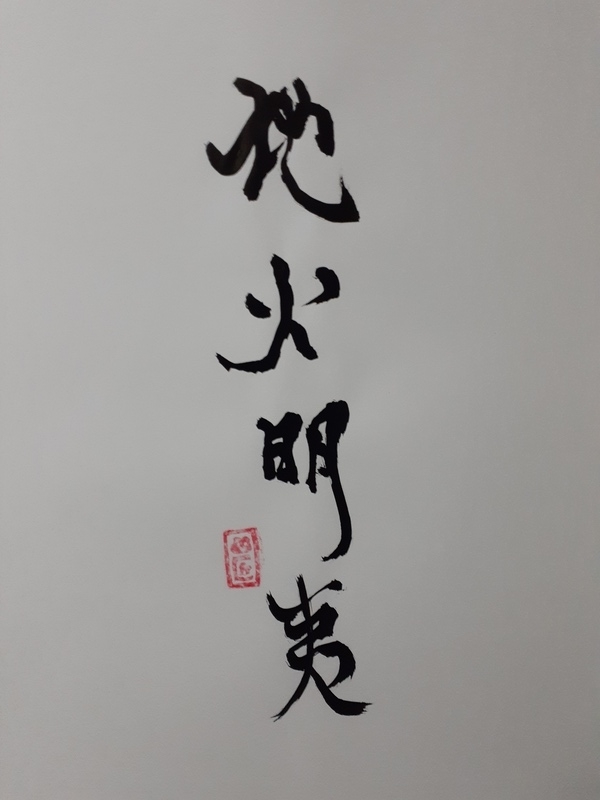 地火明夷